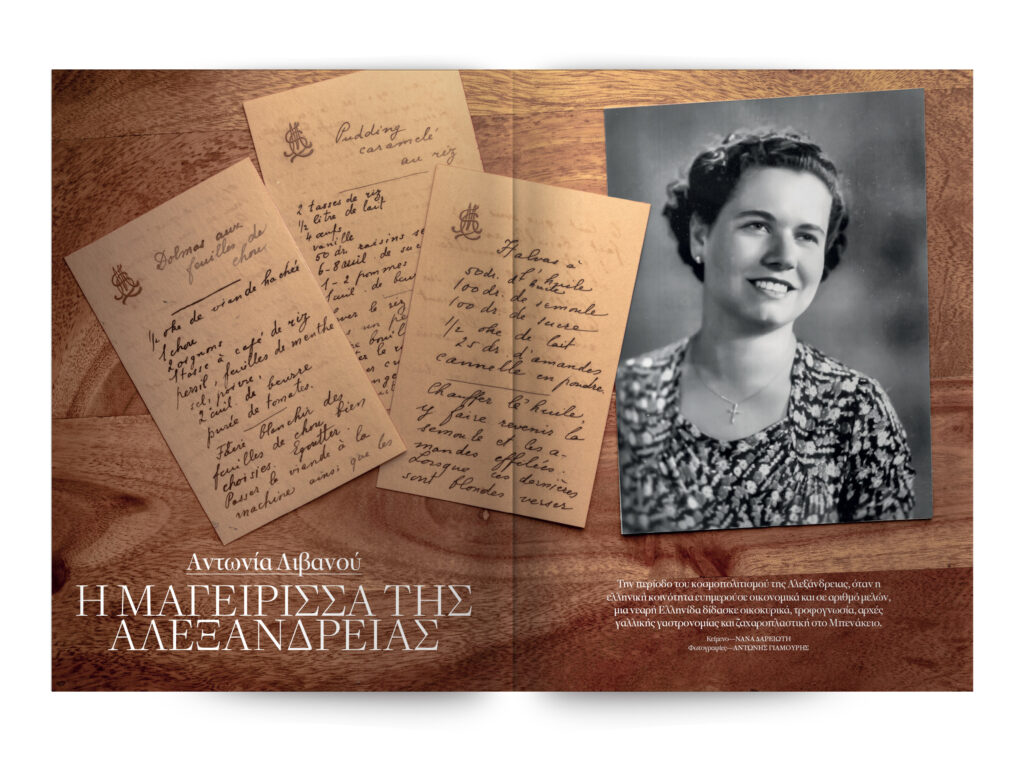 Dolmas aux
feuilles de
chou
½ oke de viande hachée
1 chou
2 oignons
1 tasse à café de riz
persil, feuilles de menthe
sel, poivre,
2 cuil. de beurre
purée de tomates.
Faire blanchir des
feuilles de chou bien
choisies. Egoutter.
Passer la viande à la
machine ainsi que les
Pudding
caramelé
au riz
2 tasses de riz
½ litre de lait
4 œufs
vanille
50 dr. raisins se
6-8 cuil. de suc
1-2 pommes
1 cuil. de beu
ver le riz
Halvas à
l'huile
50 dr. d'huile
100 dr. de semoule
100 dr. de sucre
½ oke de lait
25 dr. d'amandes
cannelle en poudre
Chauffer l'huile,
y faire revenir la
semoule et les a-
mandes effilées.
Lorsque ces dernières
sont blondes verser
Αντωνία Λιβανού
Η ΜΑΓΕΙΡΙΣΣΑ ΤΗΣ
ΑΛΕΞΑΝΔΡΕΙΑΣ
Την περίοδο του κοσμοπολιτισμού της Αλεξάνδρειας, όταν η
ελληνική κοινότητα ευημερούσε οικονομικά και σε αριθμό μελών,
μια νεαρή Ελληνίδα δίδασκε οικοκυρικά, τροφογνωσία, αρχές
γαλλικής γαστρονομίας και ζαχαροπλαστική στο Μπενάκειο.
Κείμενο—ΝΑΝΑ ΔΑΡΕΙΩΤΗ
Φωτογραφίες—ΑΝΤΩΝΗΣ ΓΙΑΜΟΥΡΗΣ